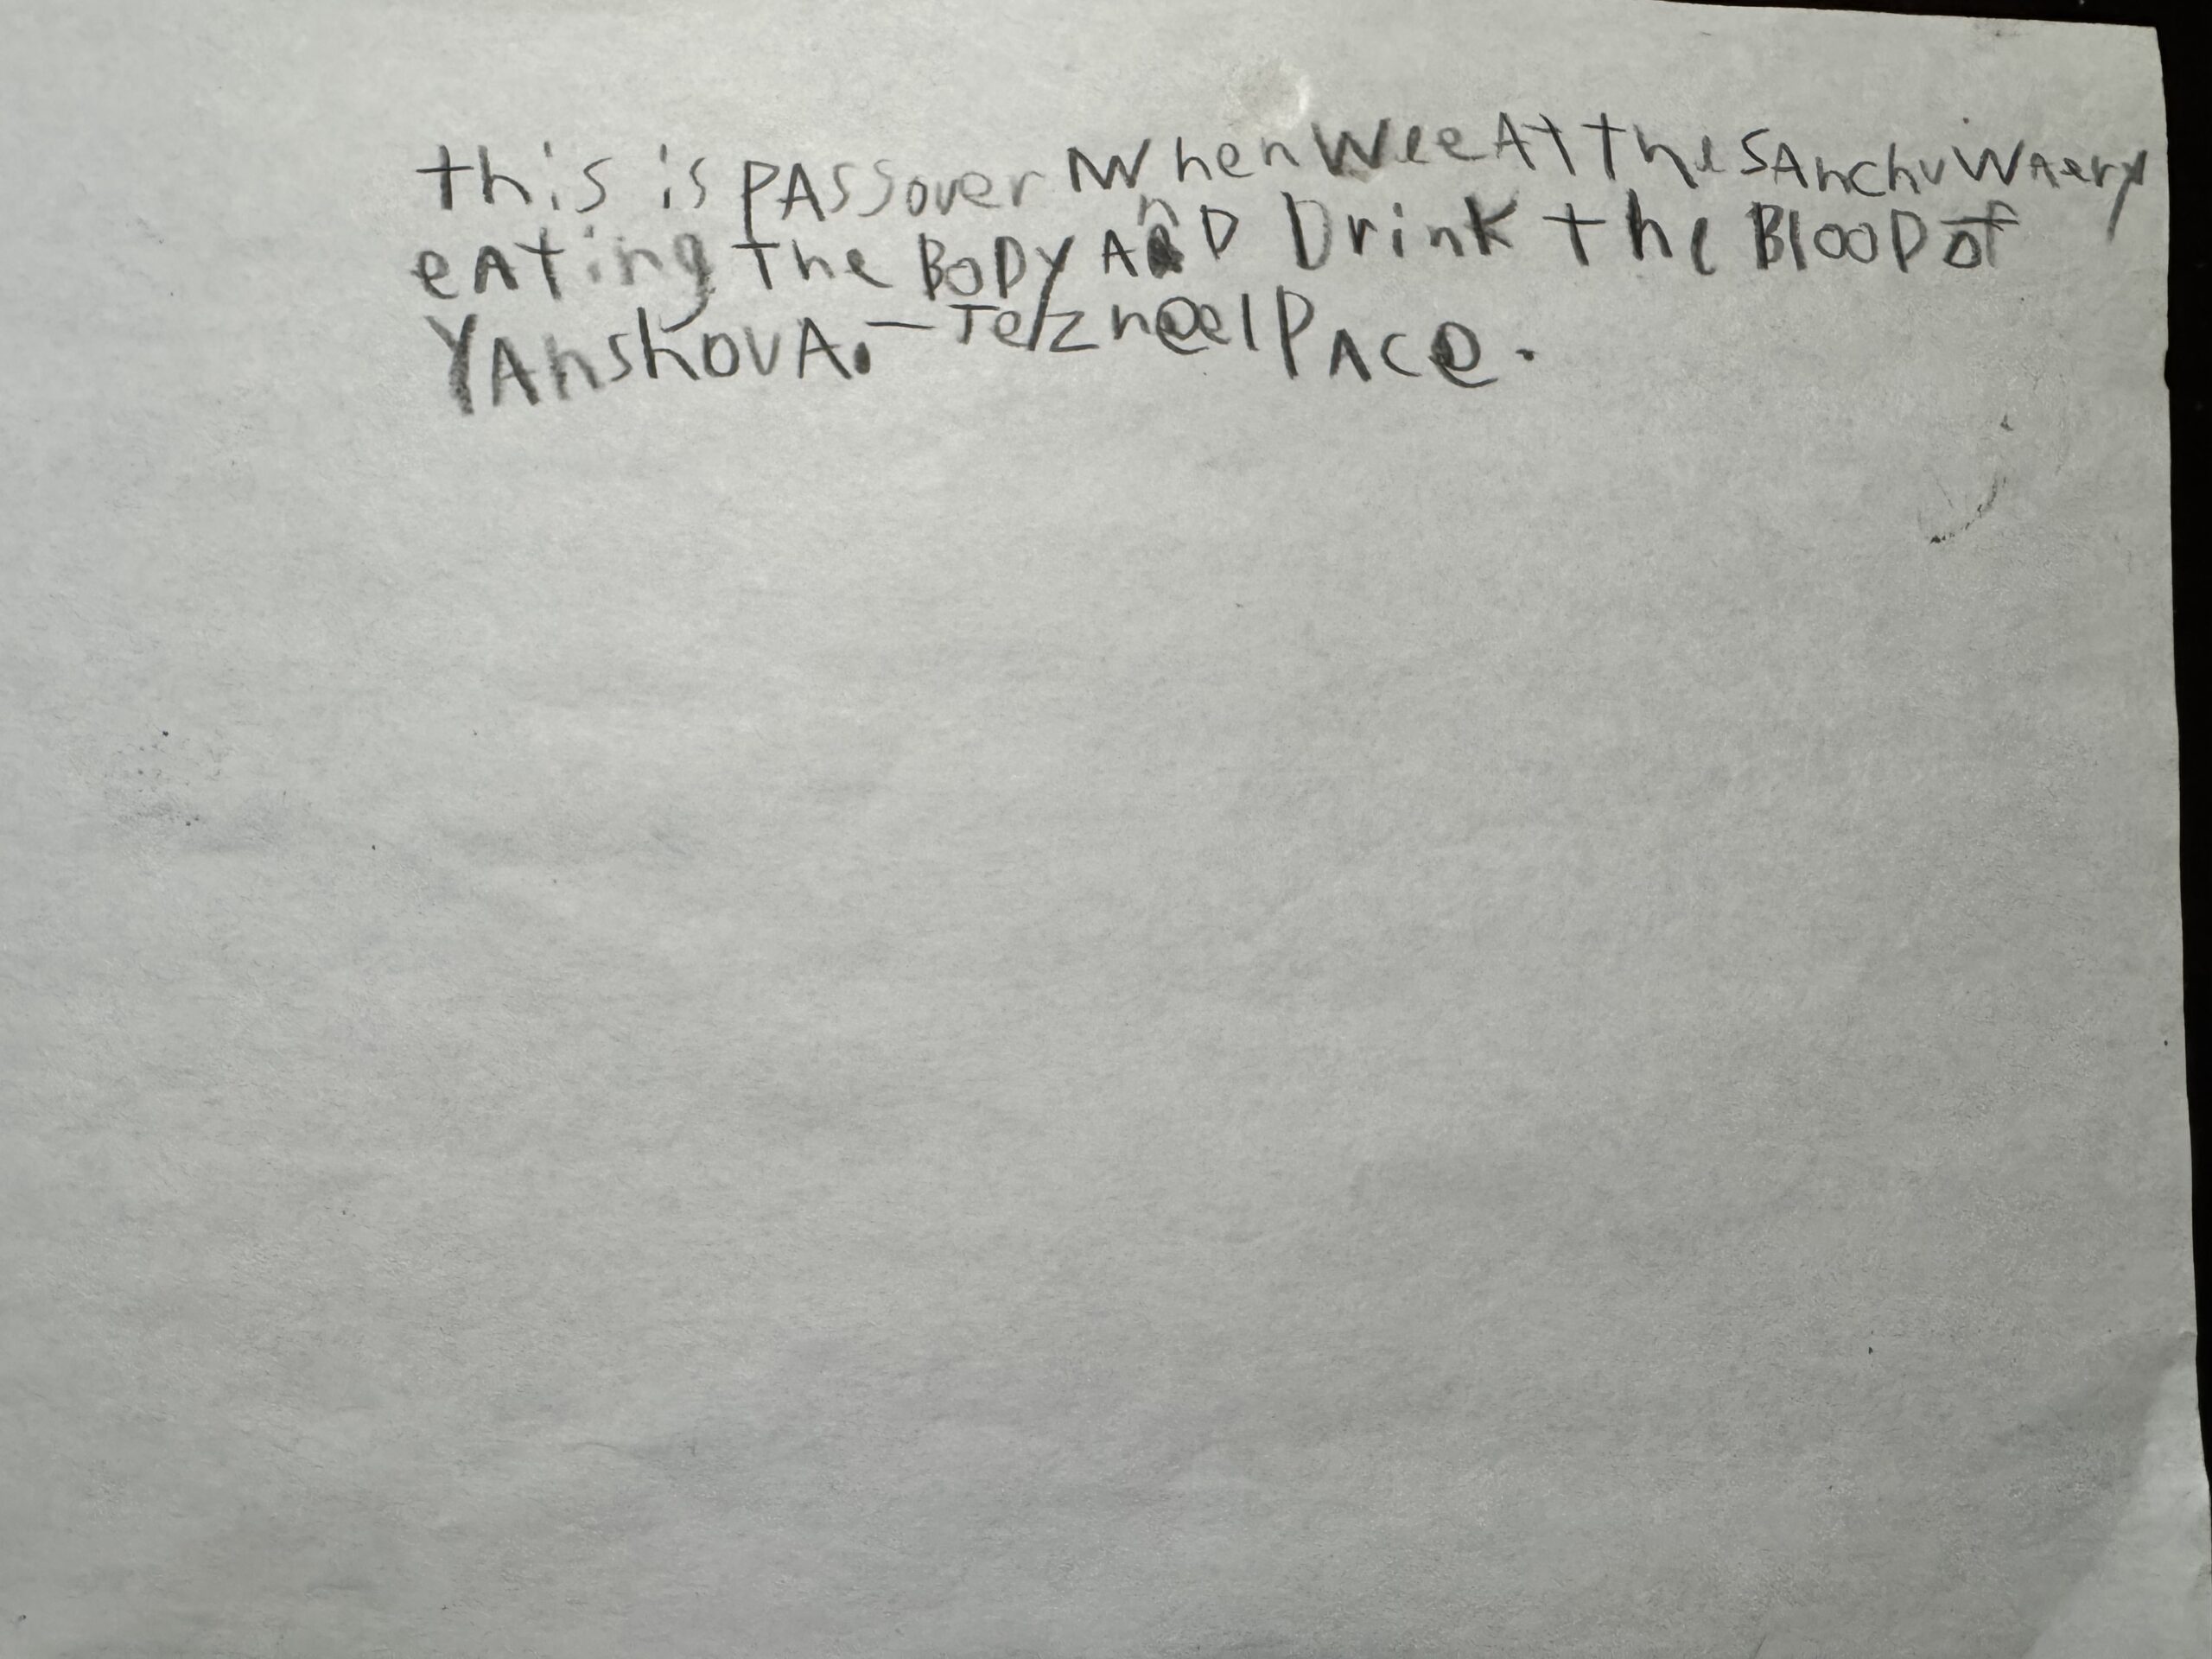 this is PAssover When WeeAt the SAnchuWAery
eAting the BoDy AnD Drink the BlooD of
YAhshovA. – JelzneelPAce.